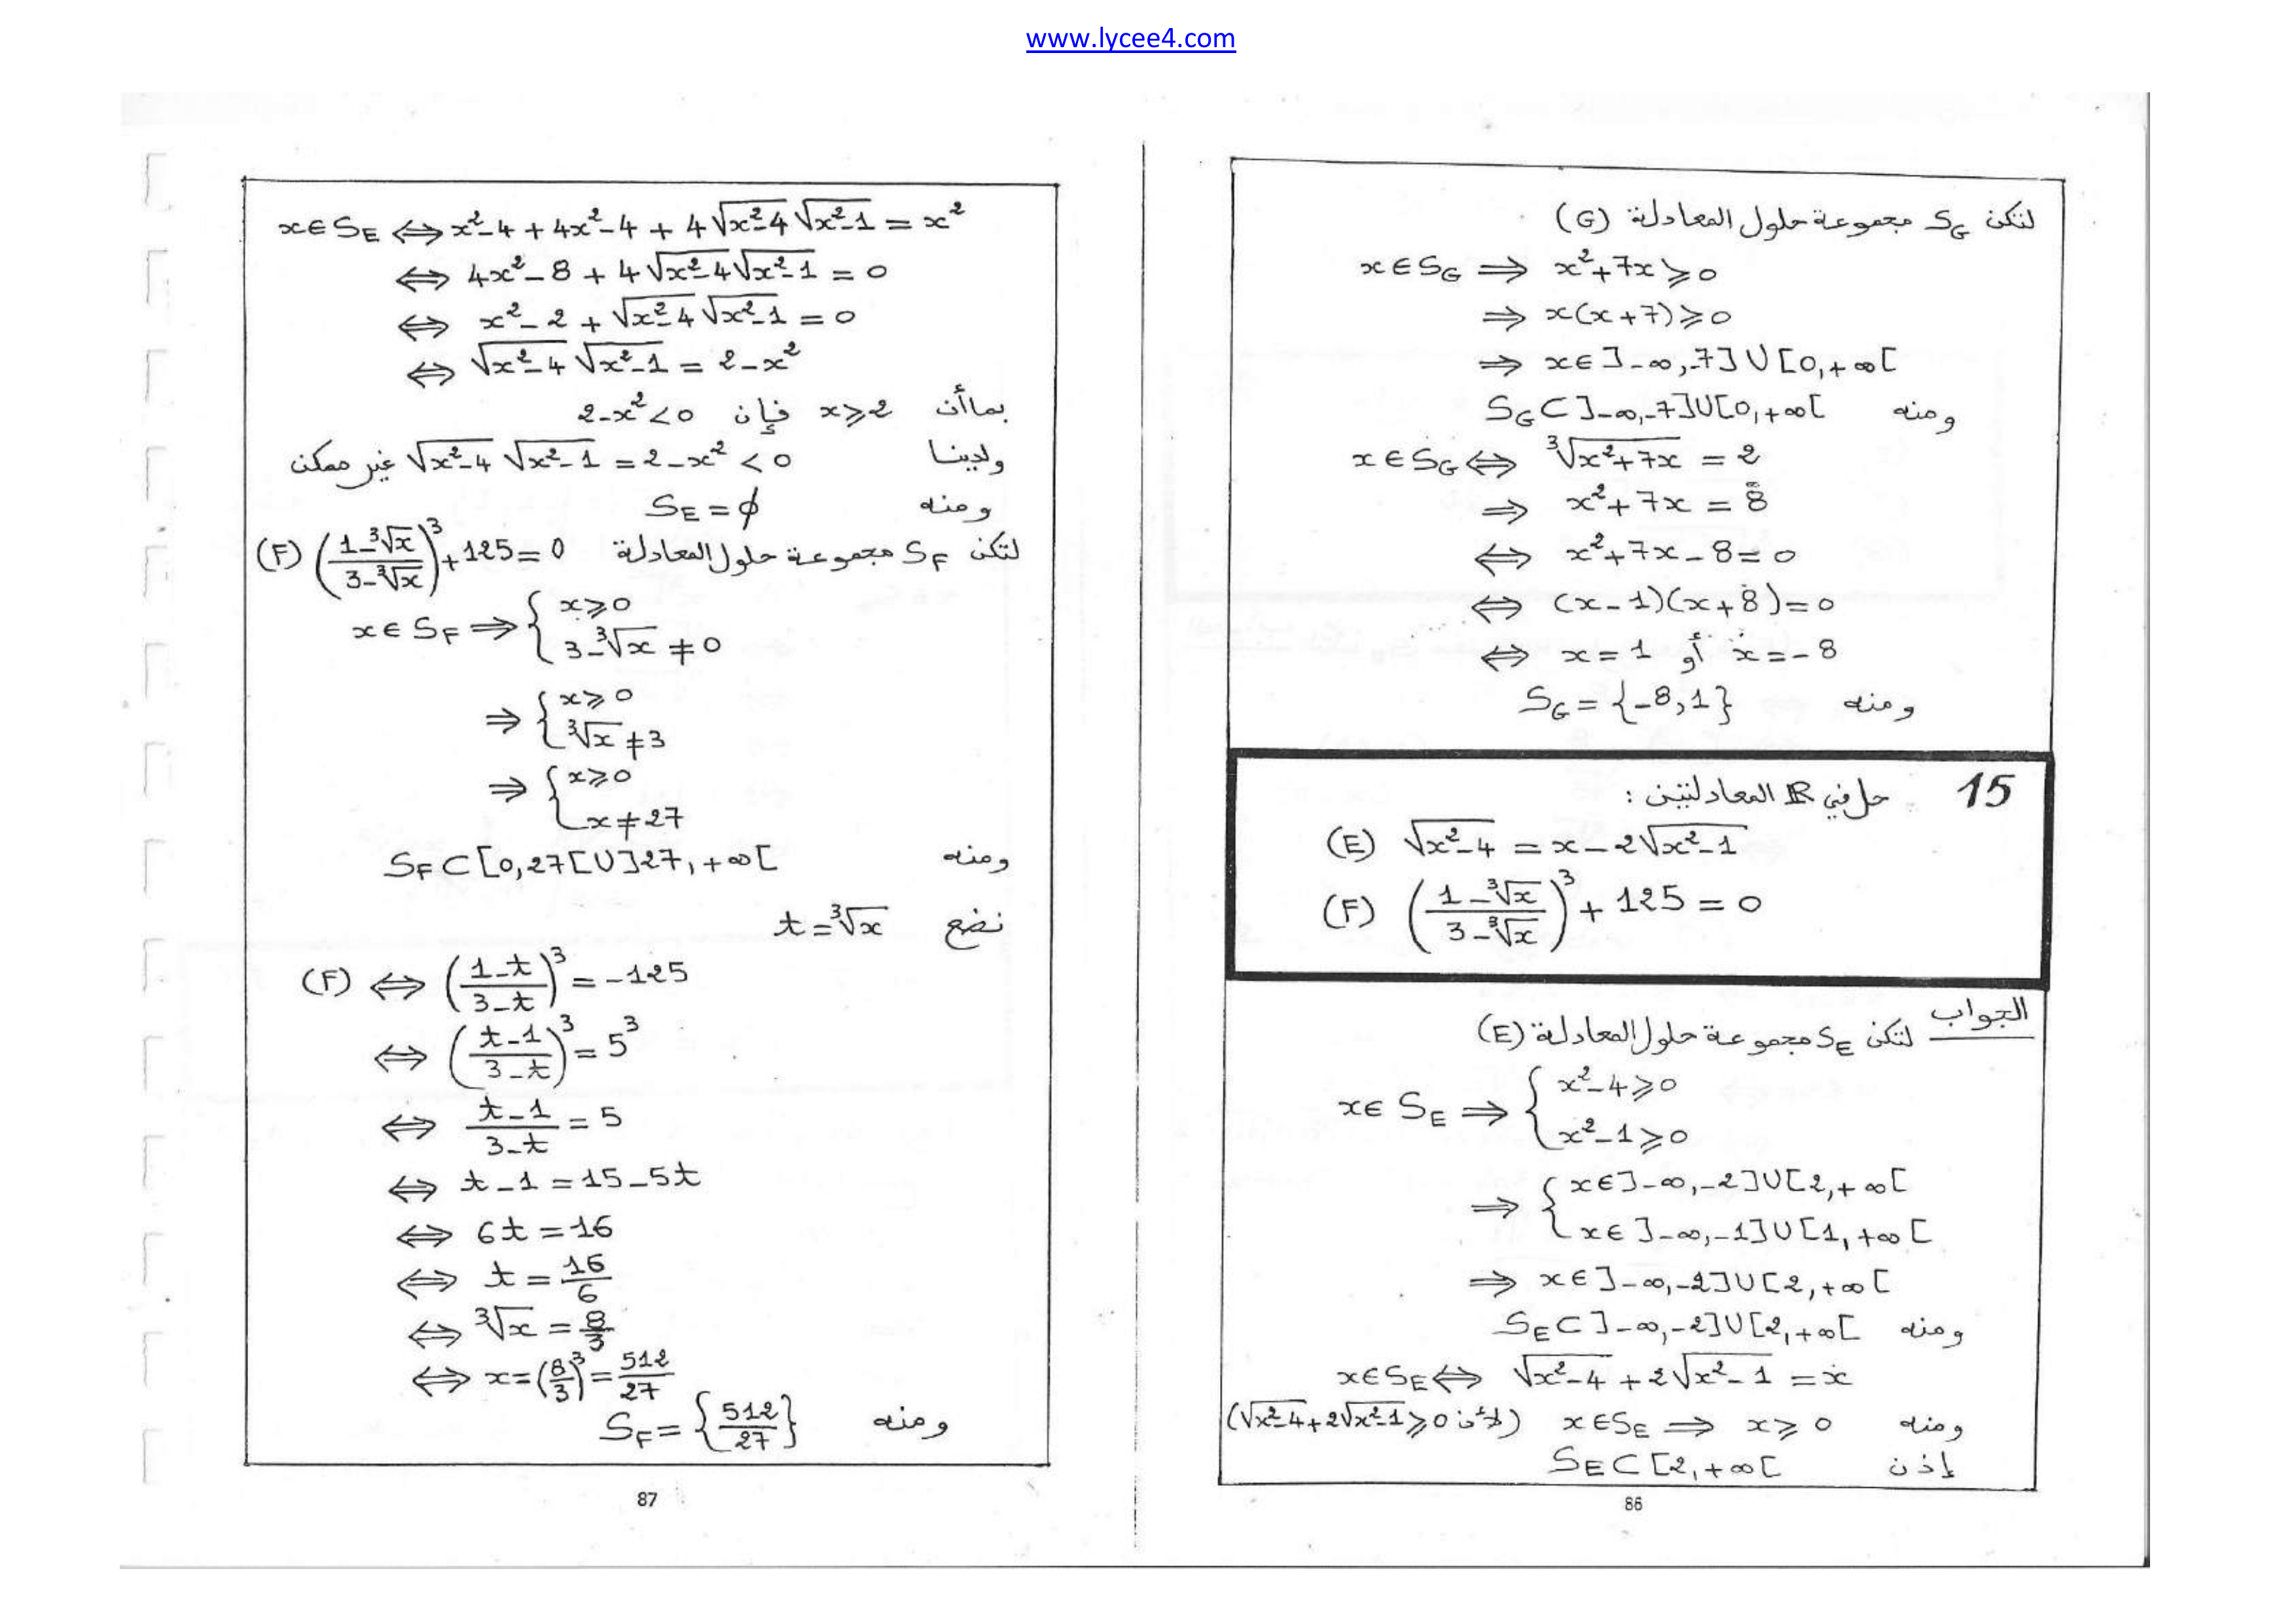 www.lycee4.com
لتكن S_G مجموعة حلول المعادلة (G)
x ∈ S_G ⟹ x²+7x ⩾ 0
⟹ x(x+7) ⩾ 0
⟹ x ∈ ]-∞,-7] ∪ [0,+∞[
ومنه S_G ⊂ ]-∞,-7] ∪ [0,+∞[
x ∈ S_G ⟺ ∛(x²+7x) = 2
⟹ x²+7x = 8
⟺ x²+7x-8 = 0
⟺ (x-1)(x+8) = 0
⟺ x = 1 أو x = -8
ومنه S_G = {-8,1}
15 حل في ℝ المعادلتين :
(E) √(x²-4) = x-2√(x²-1)
(F) ((1-∛x)/(3-∛x))³ + 125 = 0
الجواب لتكن S_E مجموعة حلول المعادلة (E)
x ∈ S_E ⟹ { x²-4 ⩾ 0
x²-1 ⩾ 0
⟹ { x ∈ ]-∞,-2] ∪ [2,+∞[
x ∈ ]-∞,-1] ∪ [1,+∞[
⟹ x ∈ ]-∞,-2] ∪ [2,+∞[
ومنه S_E ⊂ ]-∞,-2] ∪ [2,+∞[
x ∈ S_E ⟺ √(x²-4) + 2√(x²-1) = x
ومنه x ∈ S_E ⟹ x ⩾ 0 (لأن √(x²-4)+2√(x²-1) ⩾ 0)
إذن S_E ⊂ [2,+∞[
86
x ∈ S_E ⟺ x²-4+4x²-4+4√(x²-4)√(x²-1) = x²
⟺ 4x²-8+4√(x²-4)√(x²-1) = 0
⟺ x²-2+√(x²-4)√(x²-1) = 0
⟺ √(x²-4)√(x²-1) = 2-x²
بما أن x ⩾ 2 فإن 2-x² < 0
ولدينا √(x²-4)√(x²-1) = 2-x² < 0 غير ممكن
ومنه S_E = ϕ
لتكن S_F مجموعة حلول المعادلة (F) ((1-∛x)/(3-∛x))³ + 125 = 0
x ∈ S_F ⟹ { x ⩾ 0
3-∛x ≠ 0
⟹ { x ⩾ 0
∛x ≠ 3
⟹ { x ⩾ 0
x ≠ 27
ومنه S_F ⊂ [0,27[ ∪ ]27,+∞[
نضع t = ∛x
(F) ⟺ ((1-t)/(3-t))³ = -125
⟺ ((t-1)/(3-t))³ = 5³
⟺ (t-1)/(3-t) = 5
⟺ t-1 = 15-5t
⟺ 6t = 16
⟺ t = 16/6
⟺ ∛x = 8/3
⟺ x = (8/3)³ = 512/27
ومنه S_F = {512/27}
87